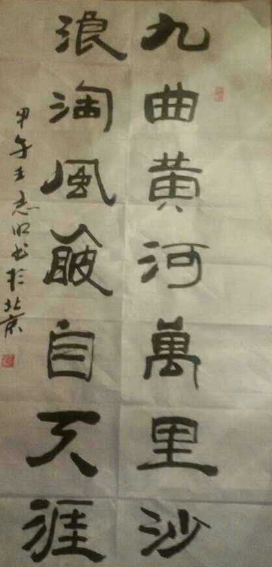 九曲黄河萬里沙
浪淘風簸自天涯
甲午王志明书于北京